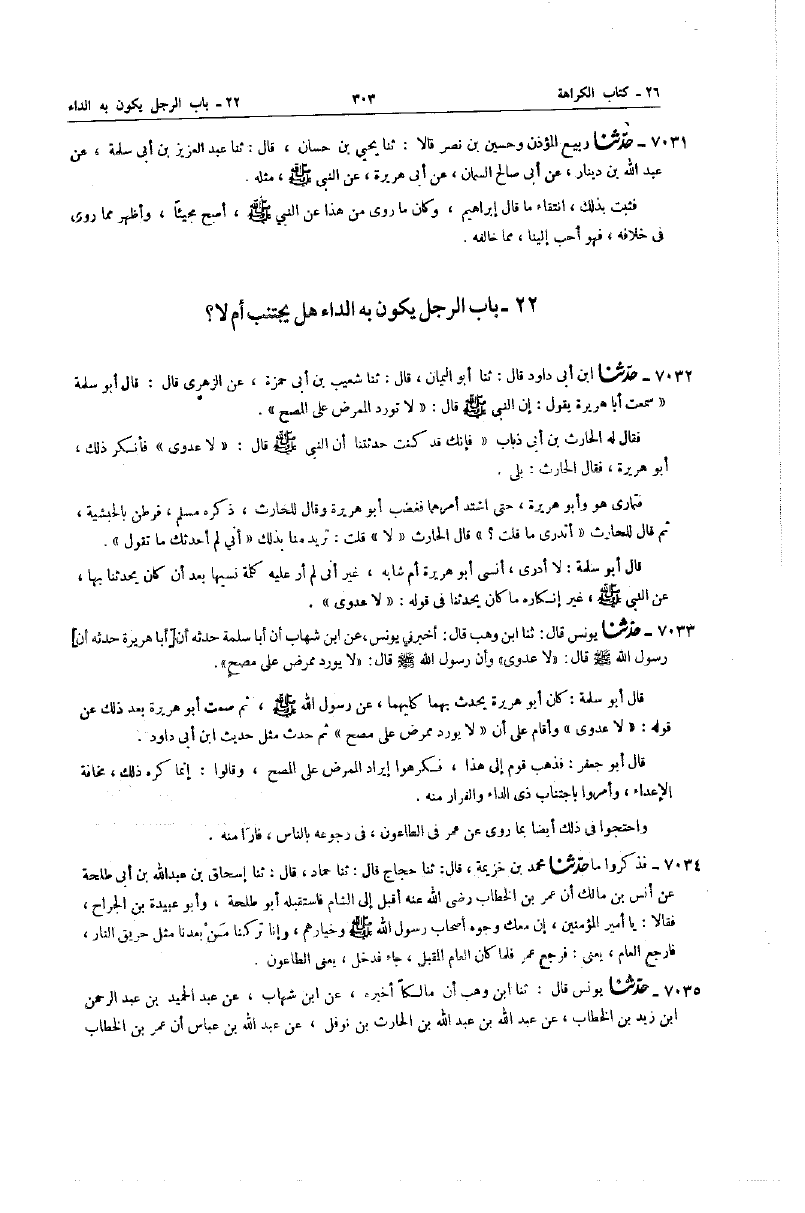 ٢٦ - كتاب الكراهة ٣٠٣ ٢٢ - باب الرجل يكون به الداء
٧٠٣١ - حدثنا ربيع المؤذن وحسين بن نصر قالا : ثنا يحيى بن حسان ، قال : ثنا عبد العزيز بن أبى سلمة ، عن
عبد الله بن دينار ، عن أبى صالح السمان ، عن أبى هريرة ، عن النبى ﷺ ، مثله .
فثبت بذلك ، انتفاء ما قال إبراهيم ، وكان ما روى من هذا عن النبى ﷺ ، أصح مجيئاً ، وأظهر مما روى،
فى خلافه ، فهو أحب إلينا ، مما خالفه .
٢٢ - باب الرجل يكون به الداء هل يجتنب أم لا ؟
٧٠٣٢ - حدثنا ابن أبى داود قال : ثنا أبو اليمان ، قال : ثنا شعيب بن أبى حمزة ، عن الزهرى قال : قال أبو سلمة
« سمعت أبا هريرة يقول : إن النبى ﷺ قال : « لا تورد الممرض على المصح » .
فقال له الحارث بن أبى ذباب « فإنك قد كنت حدثتنا أن النبى ﷺ قال : « لا عدوى » فأنكر ذلك ،
أبو هريرة ، فقال الحارث : بلى .
فتمارى هو وأبو هريرة ، حتى اشتد أمرهما فغضب أبو هريرة وقال للحارث ، ذكره مسلم ، فرطن بالحبشية ،
ثم قال للحارث « أتدرى ما قلت ؟ » قال الحارث « لا » قلت : تريد منا بذلك « أنى لم أحدثك ما تقول » .
قال أبو سلمة : لا أدرى ، أنسى أبو هريرة أم شابه ، غير أنى لم أر عليه كلمة نسيها بعد أن كان يحدثنا بها ،
عن النبى ﷺ ، غير إنكاره ما كان يحدثنا فى قوله : « لا عدوى » .
٧٠٣٣ - حدثنا يونس قال: ثنا ابن وهب قال: أخبرني يونس،عن ابن شهاب أن أبا سلمة حدثه أن[أبا هريرة حدثه أن]
رسول الله ﷺ قال: «لا عدوى» وأن رسول الله ﷺ قال: «لا يورد ممرض على مصح».
قال أبو سلمة : كان أبو هريرة يحدث بهما كليهما ، عن رسول الله ﷺ ، ثم صمت أبو هريرة بعد ذلك عن
قوله : « لا عدوى » وأقام على أن « لا يورد ممرض على مصح » ثم حدث مثل حديث ابن أبى داود .
قال أبو جعفر : فذهب قوم إلى هذا ، فكرهوا إيراد الممرض على المصح ، وقالوا : إنما كره ذلك ، مخافة
الإعداء ، وأمروا باجتناب ذى الداء والفرار منه .
واحتجوا فى ذلك أيضا بما روى عن عمر فى الطاعون ، فى رجوعه بالناس ، فارًا منه .
٧٠٣٤ - فذكروا ما حدثنا محمد بن خزيمة ، قال: ثنا حجاج قال : ثنا حماد ، قال : ثنا إسحاق بن عبدالله بن أبى طلحة
عن أنس بن مالك أن عمر بن الخطاب رضى الله عنه أقبل إلى الشام فاستقبله أبو طلحة ، وأبو عبيدة بن الجراح ،
فقالا : يا أمير المؤمنين ، إن معك وجوه أصحاب رسول الله ﷺ وخيارهم ، وإنا تركنا مَنْ بعدنا مثل حريق النار ،
فارجع العام ، يعنى : فرجع عمر فلما كان العام المقبل ، جاء فدخل ، يعنى الطاعون .
٧٠٣٥ - حدثنا يونس قال : ثنا ابن وهب أن مالكاً أخبره ، عن ابن شهاب ، عن عبد الحميد بن عبد الرحمن
ابن زيد بن الخطاب ، عن عبد الله بن عبد الله بن الحارث بن نوفل ، عن عبد الله بن عباس أن عمر بن الخطاب